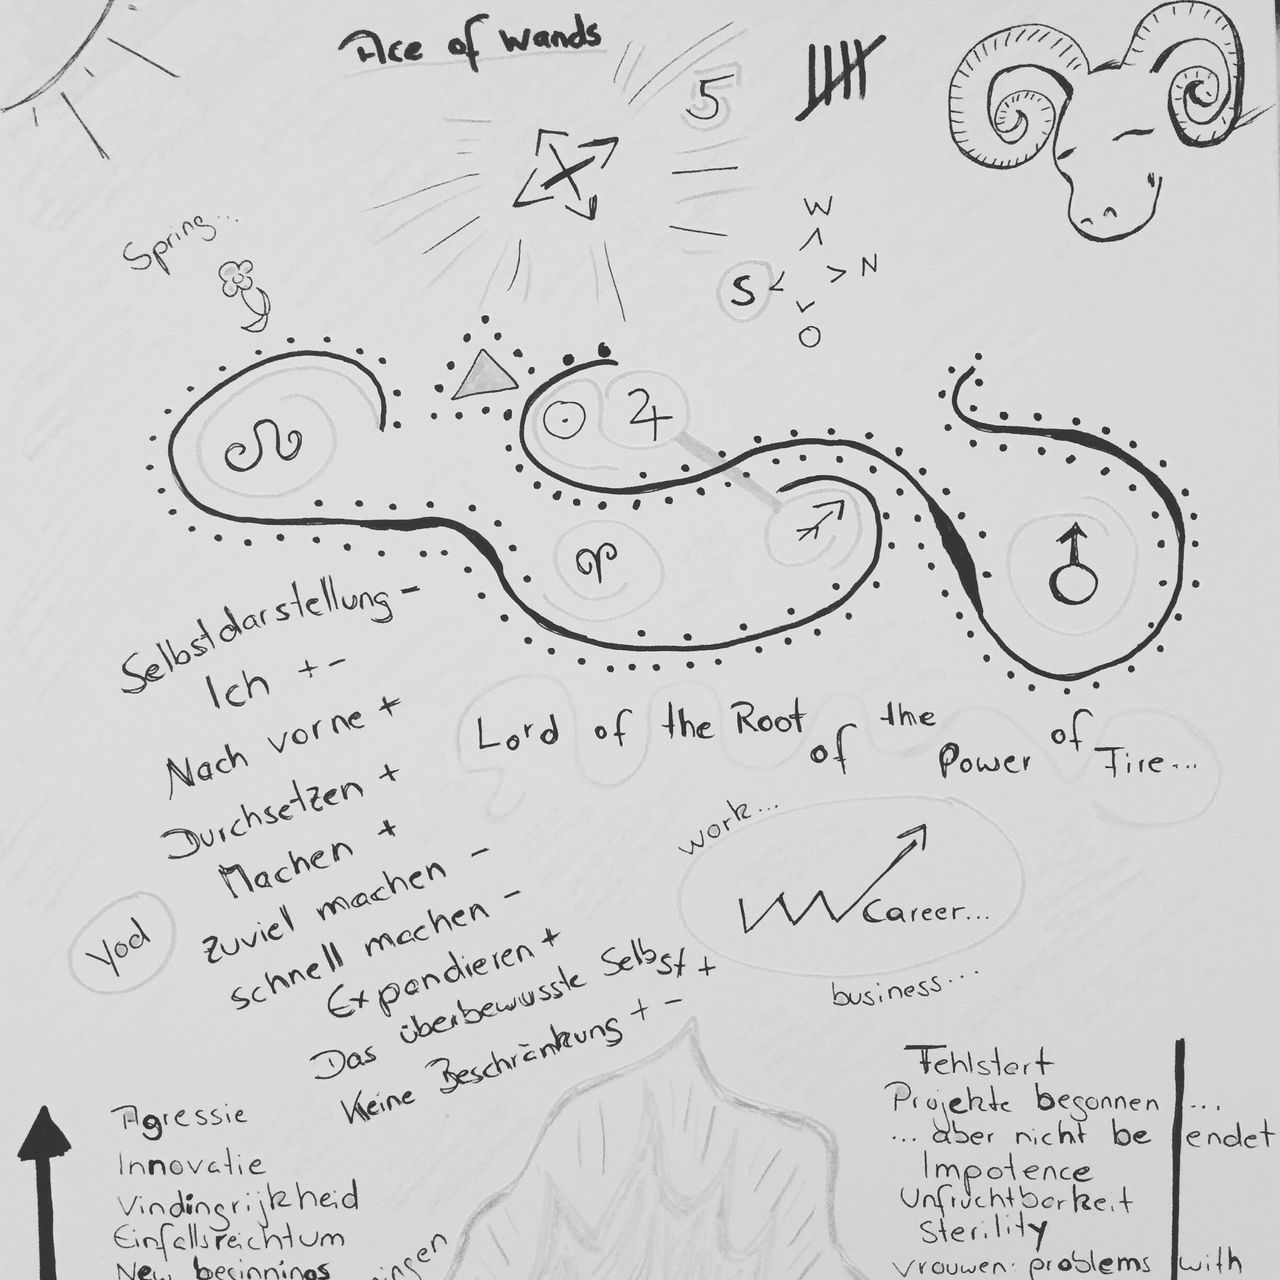 Ace of Wands
5
W
N
S
O
Spring...
Selbstdarstellung -
Ich + -
Nach vorne +
Durchsetzen +
Machen +
zuviel machen -
schnell machen -
Expandieren +
Das überbewusste Selbst +
Keine Beschränkung + -
Yod
Lord of the Root of the Power of Fire...
work...
Career...
business...
Agressie
Innovatie
Vindingrijkheid
Einfallsreichtum
New beginnings
Fehlstart
Projekte begonnen ...
... aber nicht beendet
Impotence
Unfruchtbarkeit
Sterility
vrouwen: problems with